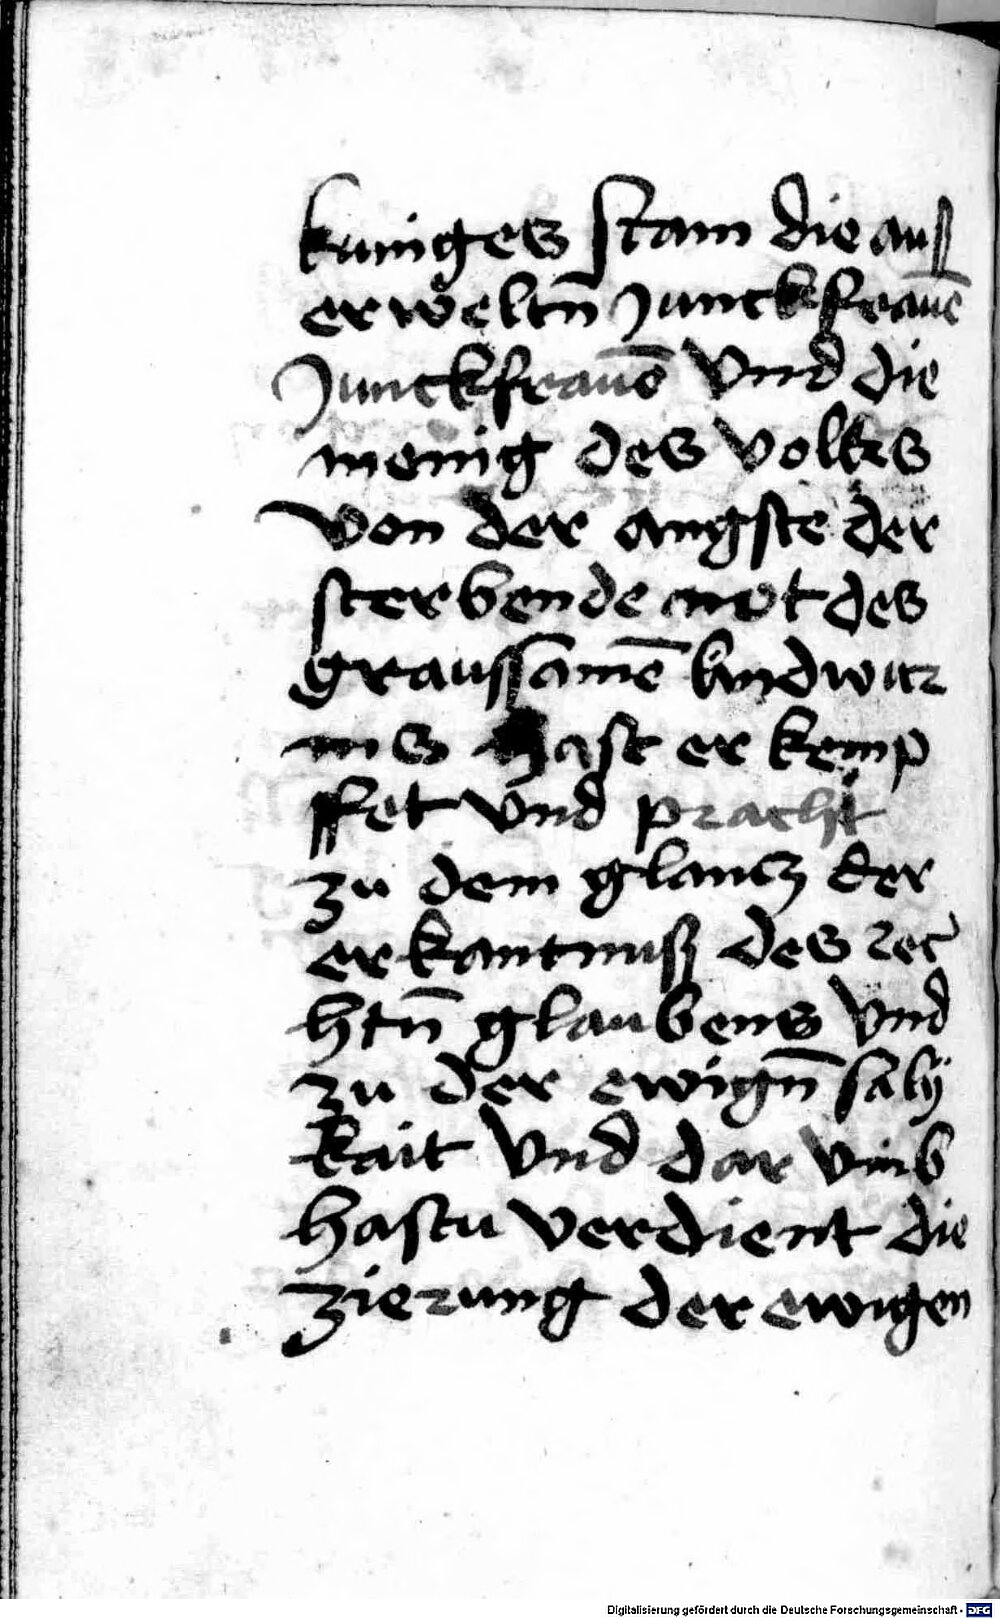 kuniges stam die auß
erweltn̄ Junckfrauē
Junckfrauē vnd die
menig des volkes
von der angste der
sterbende not des
graussamē lindwur
ms hast er kemp
ffet vnd pracht
zu dem glancz der
erkantnuß des rec
htn̄ glaubens vnd
zu der ewign̄ salij
kait vnd dar vmb
hastu verdient die
zierung der ewigen
Digitalisierung gefördert durch die Deutsche Forschungsgemeinschaft - DFG